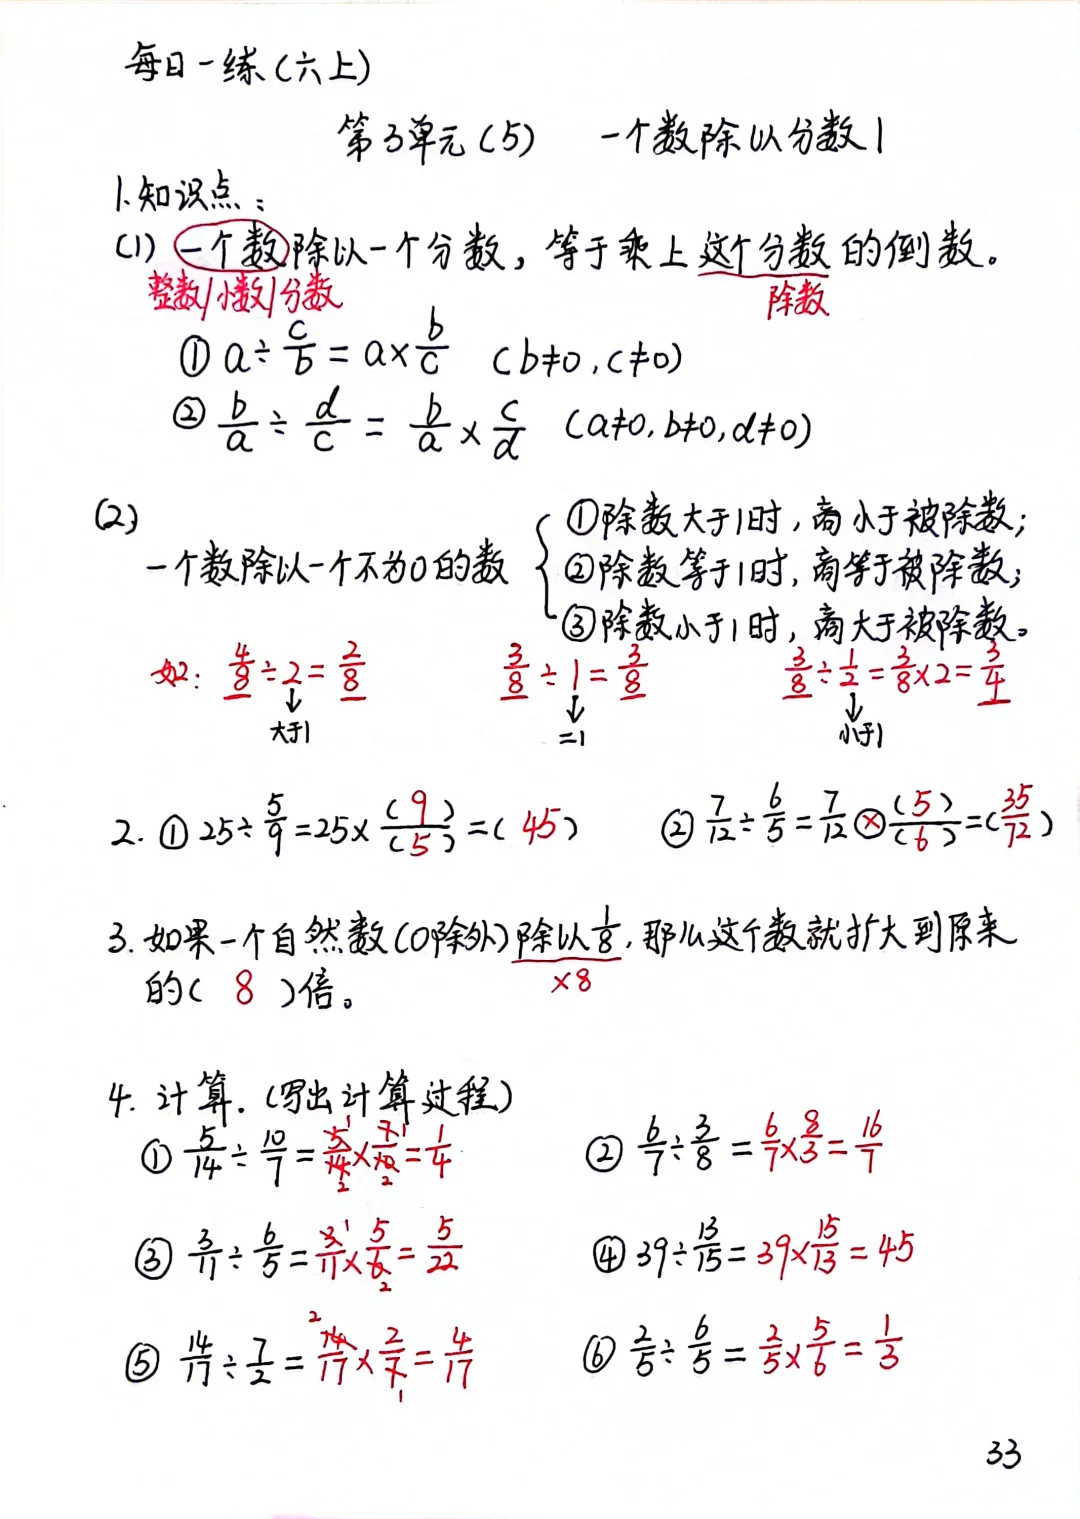 每日一练(六上)
第3单元(5) 一个数除以分数1
1.知识点:
(1)一个数除以一个分数,等于乘上这个分数的倒数。
整数/小数/分数 除数
①a÷c/b=a×b/c (b≠0,c≠0)
②b/a÷d/c=b/a×c/d (a≠0,b≠0,d≠0)
(2)
①除数大于1时,商小于被除数;
一个数除以一个不为0的数 ②除数等于1时,商等于被除数;
③除数小于1时,商大于被除数。
如: 4/8÷2=2/8 3/8÷1=3/8 3/8÷1/2=3/8×2=3/4
↓大于1 ↓=1 ↓小于1
2.①25÷5/9=25×(9)/(5)=(45) ②7/12÷6/5=7/12⊗(5)/(6)=(35/72)
3.如果一个自然数(0除外)除以1/8,那么这个数就扩大到原来
×8
的(8)倍。
4.计算.(写出计算过程)
①5/14÷10/7=5/14×7/10=1/4 ②6/7÷3/8=6/7×8/3=16/7
③3/11÷6/5=3/11×5/6=5/22 ④39÷13/15=39×15/13=45
⑤14/17÷7/2=14/17×2/7=4/17 ⑥2/5÷6/5=2/5×5/6=1/3
33